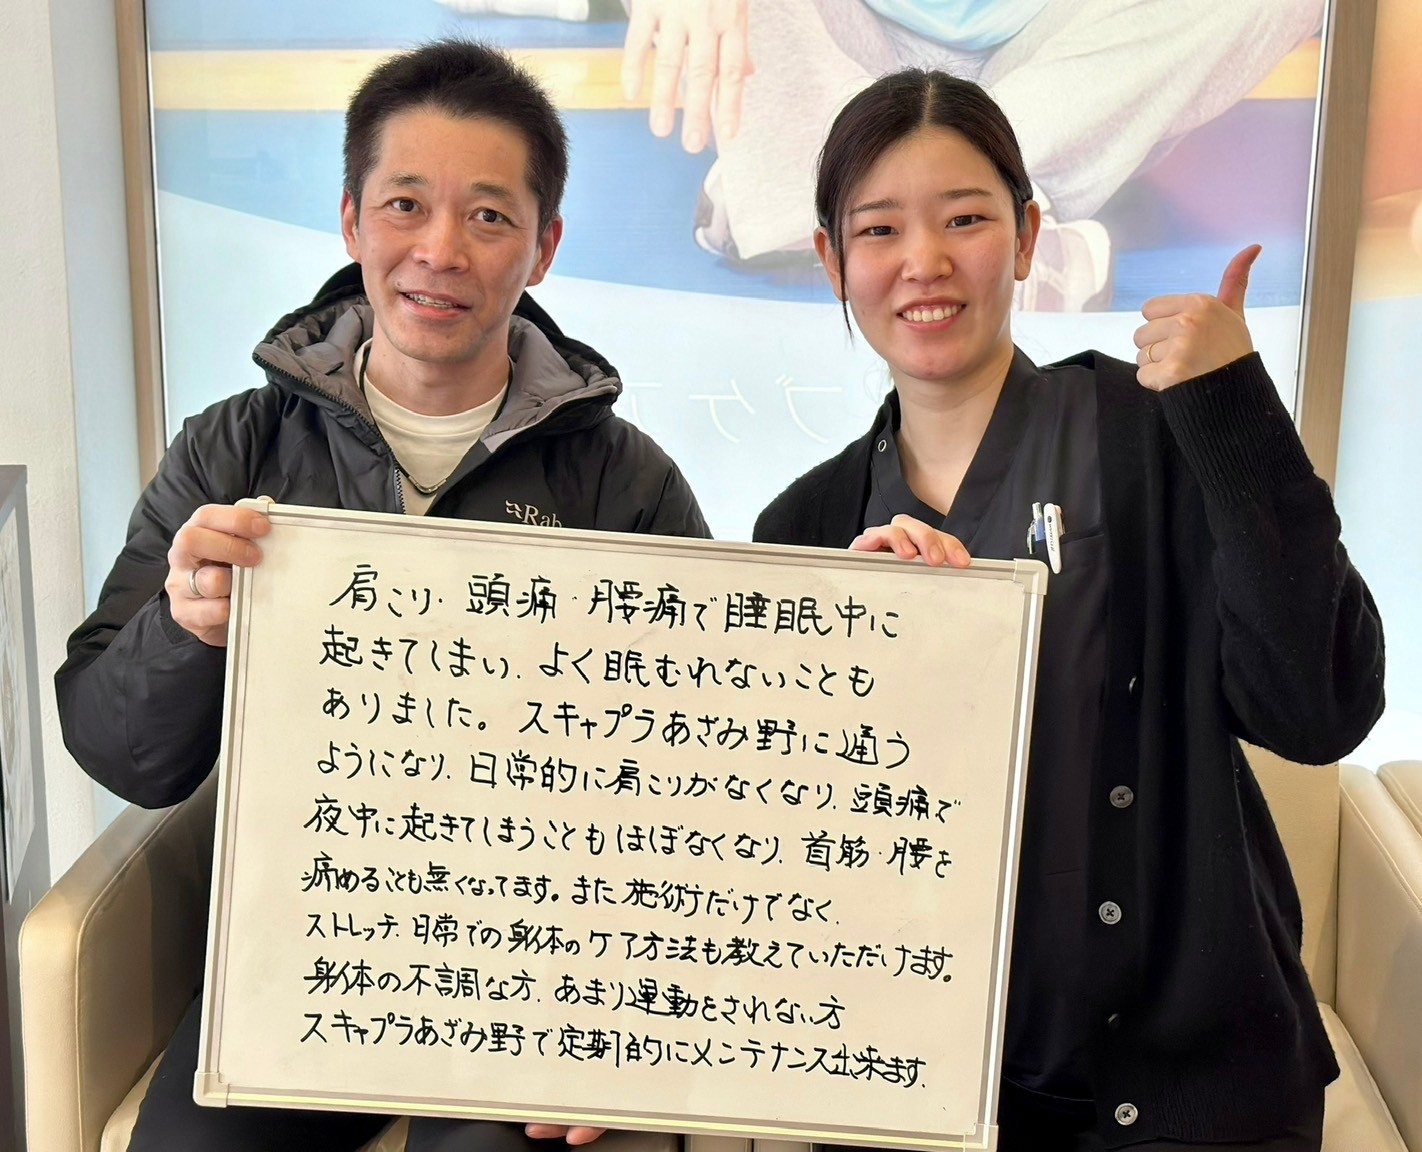 Rab
肩こり・頭痛・腰痛で睡眠中に
起きてしまい、よく眠むれないことも
ありました。スキャプラあざみ野に通う
ようになり、日常的に肩こりがなくなり、頭痛で
夜中に起きてしまうこともほぼなくなり、首筋・腰を
痛めることも無くなってます。また施術だけでなく、
ストレッチ、日常での身体のケア方法も教えていただけます。
身体の不調な方、あまり運動をされない方
スキャプラあざみ野で定期的にメンテナンス出来ます。